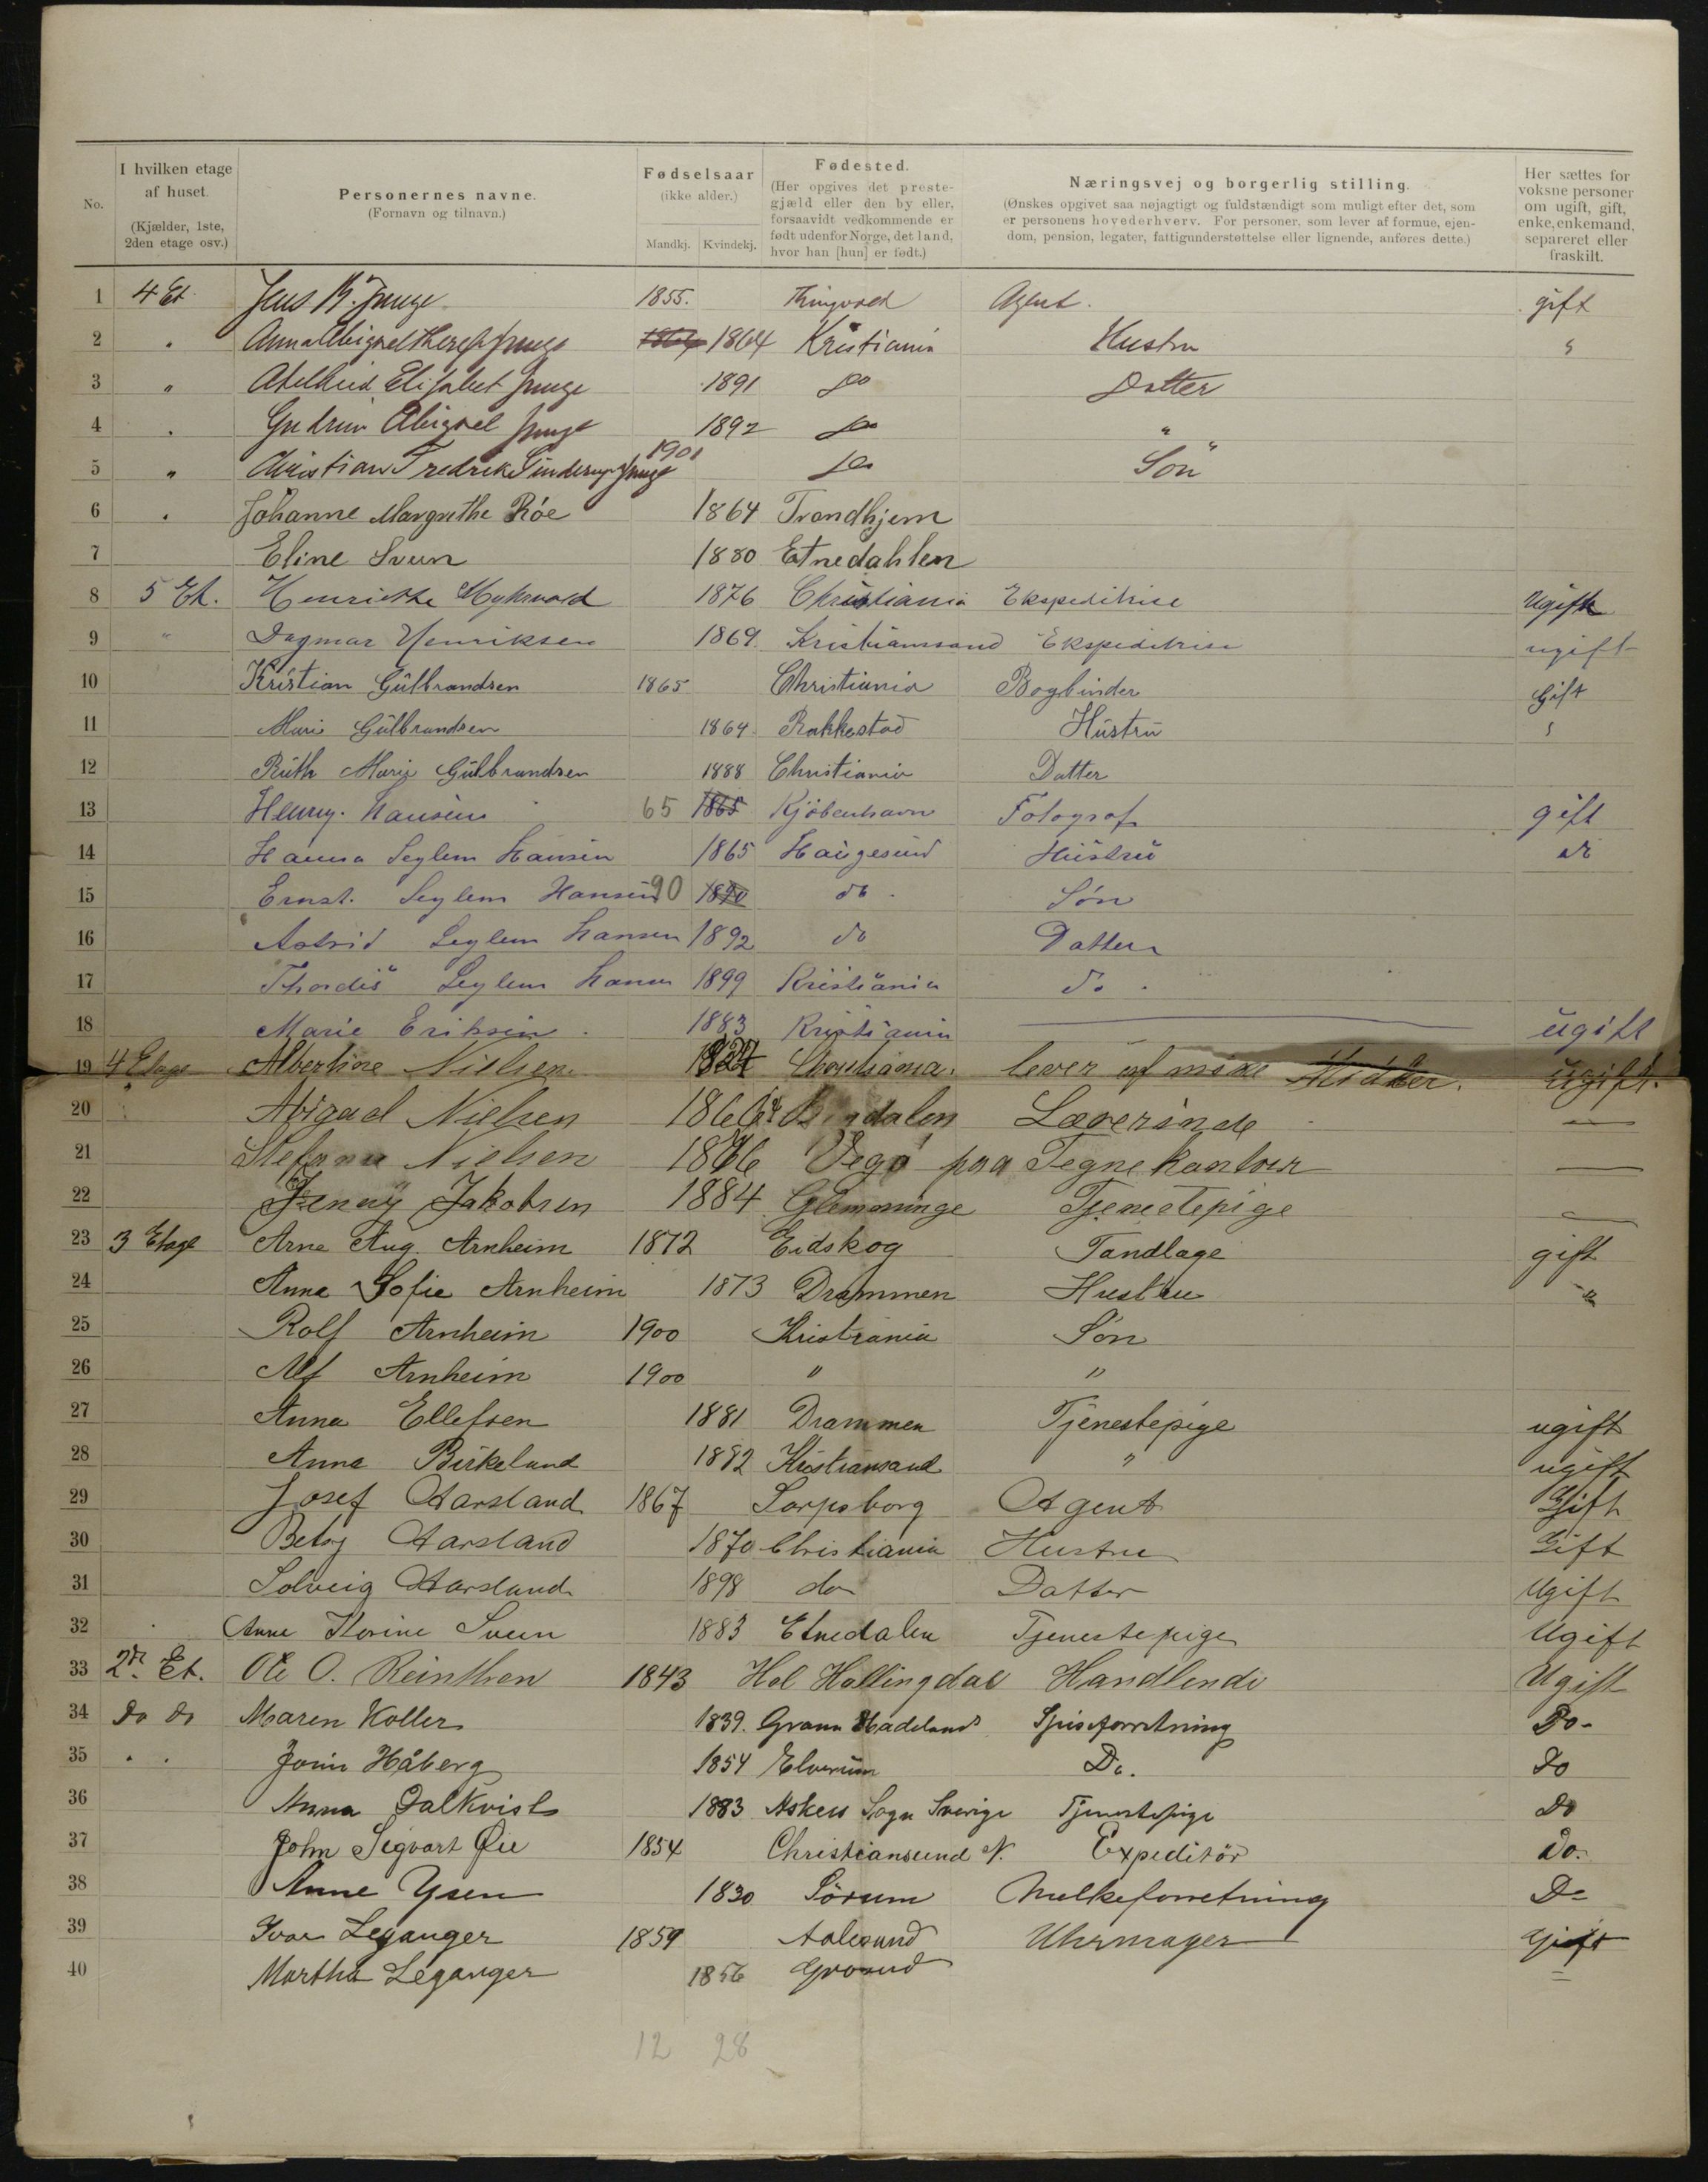 No. I hvilken etage af huset. (Kjælder, 1ste, 2den etage osv.) Personernes navne. (Fornavn og tilnavn.) Fødselsaar (ikke alder.) Mandkj. Kvindekj. Fødested. (Her opgives det prestegjæld eller den by eller, forsaavidt vedkommende er født udenfor Norge, det land, hvor han [hun] er født.) Næringsvej og borgerlig stilling. (Ønskes opgivet saa nøjagtigt og fuldstændigt som muligt efter det, som er personens hovederhverv. For personer, som lever af formue, ejendom, pension, legater, fattigunderstøttelse eller lignende, anføres dette.) Her sættes for voksne personer om ugift, gift, enke, enkemand, separeret eller fraskilt.
1 4 Et. Jens 1855. Thingvold Agent. gift
2 " Anna 1864 1864 Kristiania Hustru "
3 " Adelheid Elisabet 1891 do Datter
4 " Gudrun Abigael 1892 do "
5 " Christian Fredrik 1901 do Søn
6 " Johanne Margrethe Röe 1864 Trondhjem
7 Eline Sveen 1880 Etnedahlen
8 5 Et. Henriette Myhrvold 1876 Christiania Ekspeditrise Ugift
9 " Dagmar Henriksen 1869. Kristianssand Ekspeditrise ugift
10 Kristian Gülbrandsen 1865 Christiania Bogbinder Gift
11 Marie Gülbrandsen 1864. Rakkestad Hüstrü "
12 Rüth Marie Gülbrandsen 1888 Christiania Datter
13 Henry. Hansen 65 1865 Kjöbenhavn Fotograf gift
14 Hanna Seglem Hansen 1865 Haügesünd Hüstrü do
15 Ernst. Seglem Hansen 90 1890 do. Søn
16 Astrid Seglem Hansen 1892 do Datter
17 Thordis Seglem Hansen 1899 Kristiania do.
18 Marie Eriksen. 1883 Kristiania ugift
19 4 Etage Albertine Nielsen Christiania. lever af Midler. ugift.
20 Abigael Nielsen Bindalen Lærerinde —
21 Stefanie Nielsen 1876 Vega paa Tegnekontoir —
22 Jenny Jakobsen 1884 Glemminge Tjenestepige —
23 3 Etage Arne Aug. Arnheim 1872 Eidskog Tandlæge gift
24 Anna Sofie Arnheim 1873 Drammen Hustru "
25 Rolf Arnheim 1900 Kristiania Søn
26 Alf Arnheim 1900 " "
27 Anna Ellefsen 1881 Drammen Tjenestepige ugift
28 Anna Birkeland 1882 Kristiansand " ugift
29 Josef Aarsland 1867 Sarpsborg Agent Gift
30 Betsy Aarsland 1870 Christiania Hustru Gift
31 Solveig Aarsland 1898 do Datter Ugift
32 Anne Korine Sveen 1883 Etnedalen Tjenestepige Ugift
33 2n. Et. Ole O. Reinthon 1843 Hol Hallingdal Handlende Ugift
34 do do Maren Koller 1839. Grann Hadeland Spiseforretning Do.
35 . . Jonin Håberg 1854 Elverum Do. do
36 Anna Dalkvist 1883 Askers Sogn Sverige Tjenestepige Do
37 John Sigvart Øie 1854 Christiansund N. Expeditör do.
38 Anne Ysen 1830 Sörum Melkeforretning Do
39 Ivar Leganger 1859 Aalesund Uhrmager Gift
40 Martha Leganger 1856 Grorud =
12 28